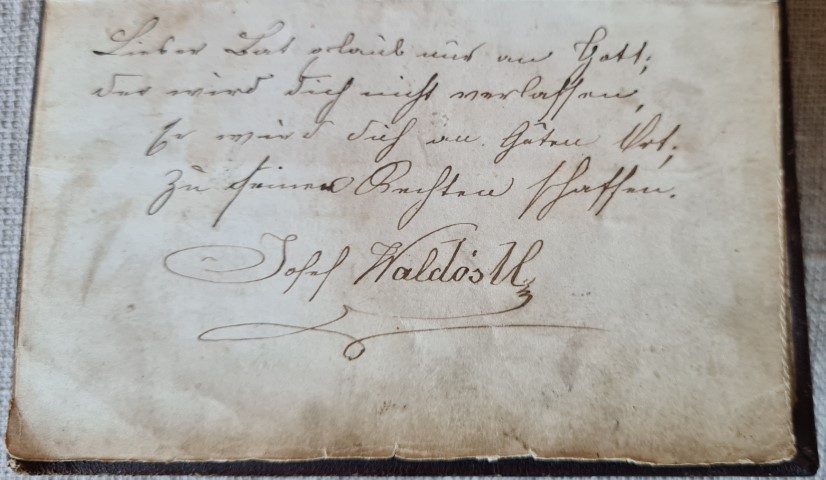 Lieber Bat glaub nur an Gott;
der wird dich nicht verlassen,
Er wird dich an Guten Ort;
Zu seiner Rechten schaffen.
Josef Waldöstl